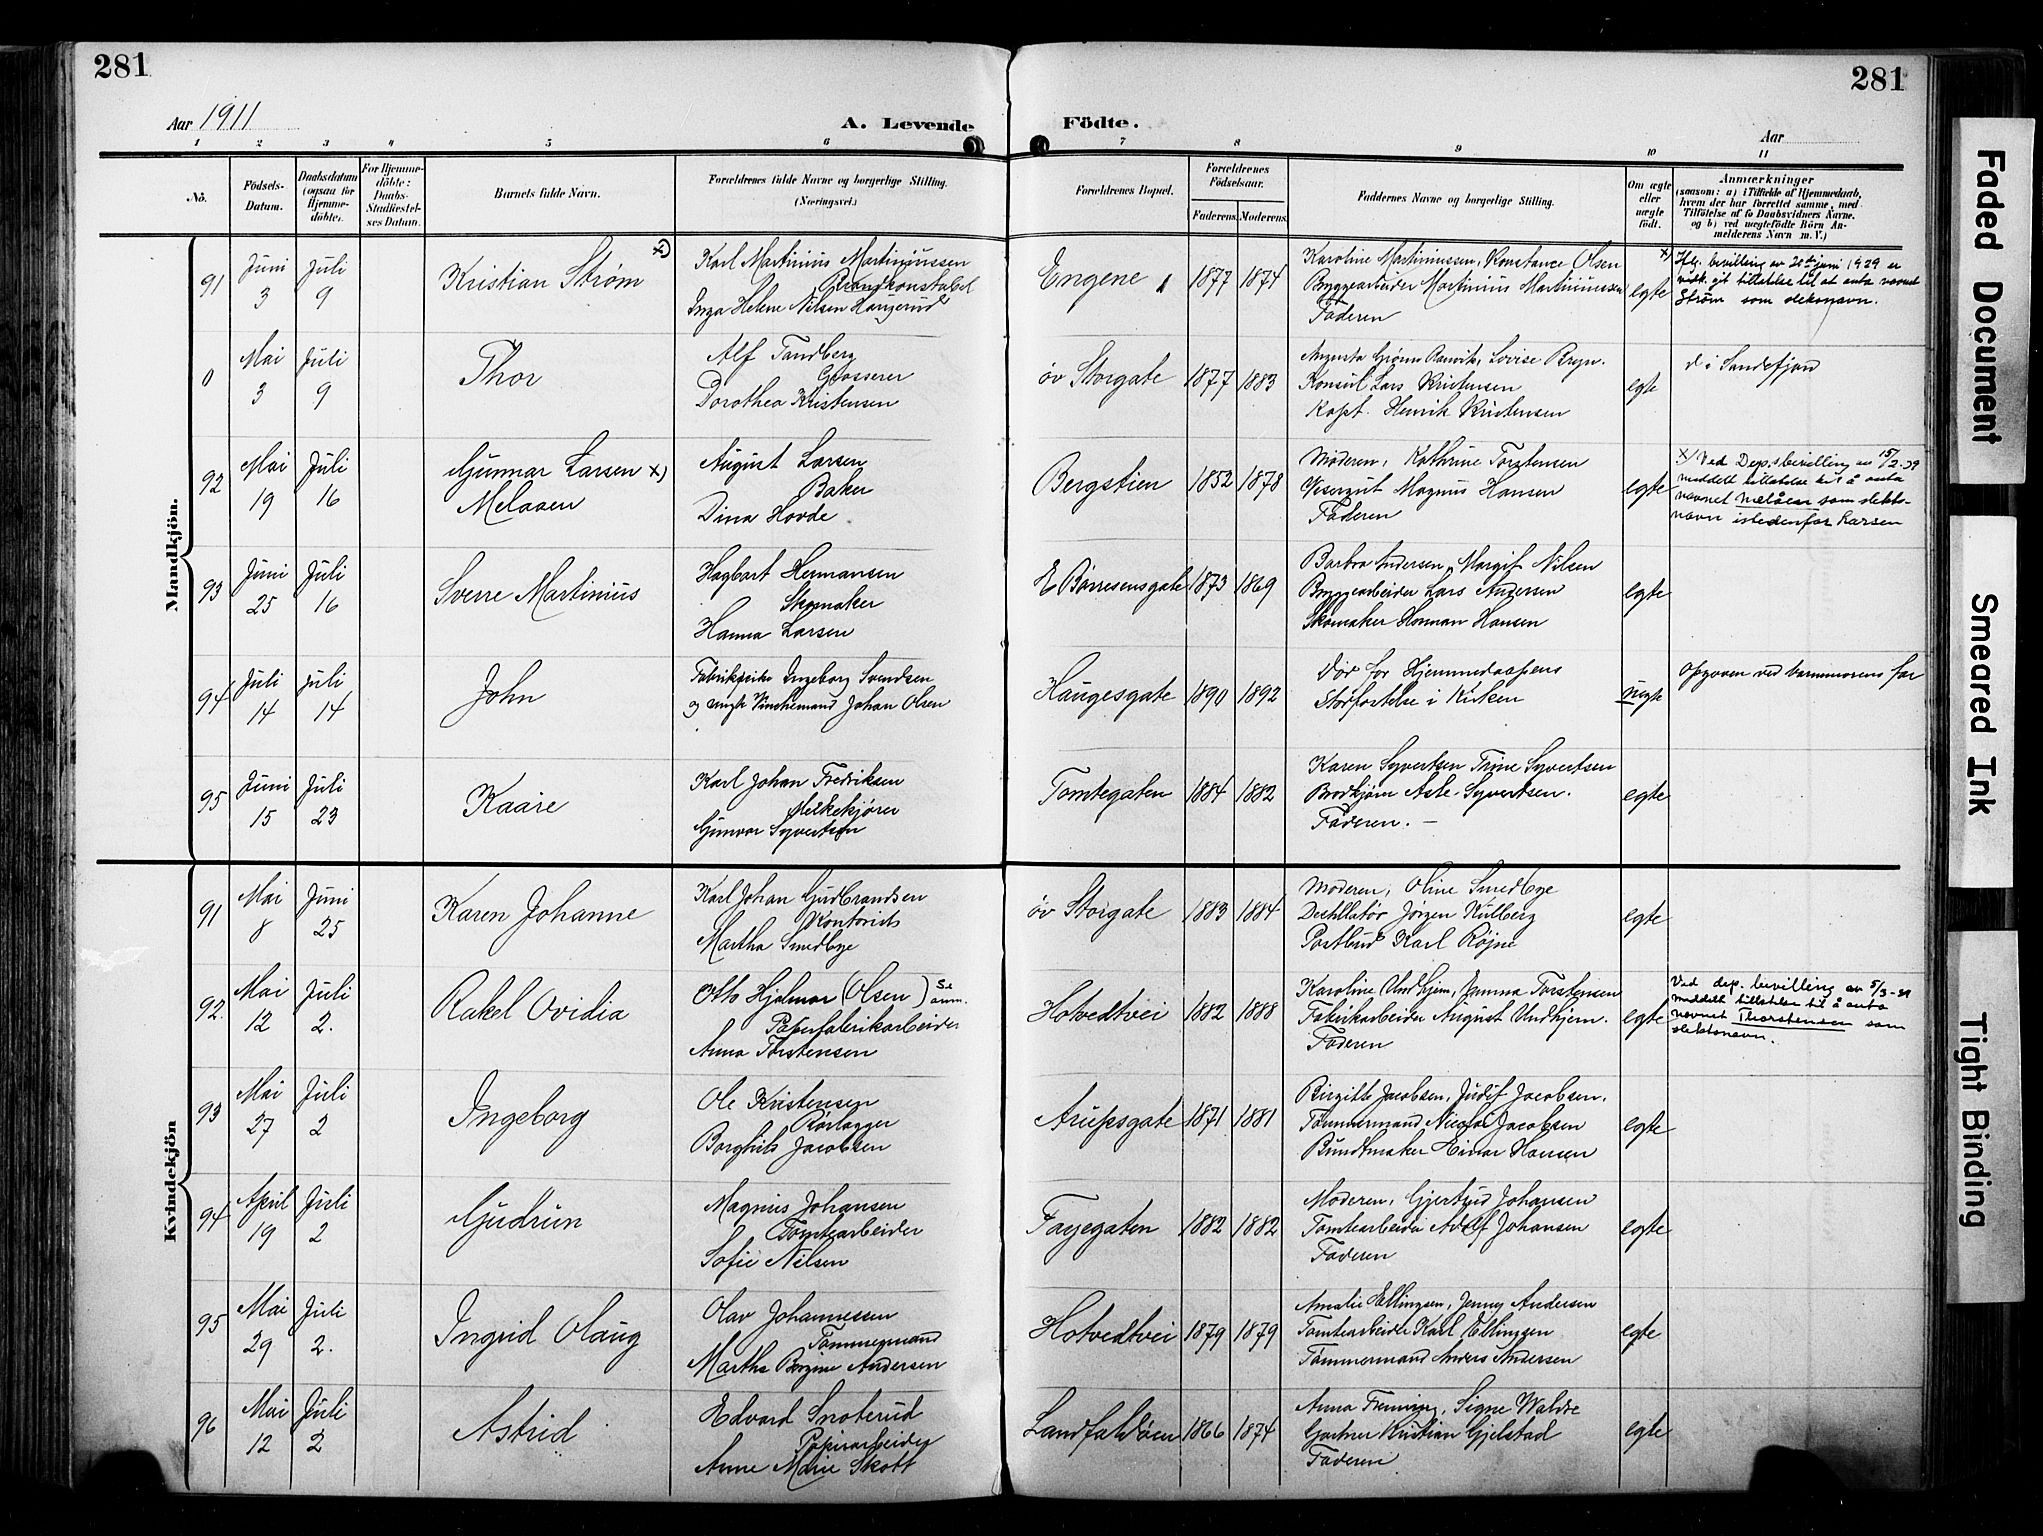 281
281
Aar 1911
A. Levende Födte.
Aar
1 2 3 4 5 6 7 8 9 10 11
No.
Födsels-Datum.
Daabsdatum (ogsaa for Hjemme-döbte).
For Hjemme-döbte: Daabs-Stadfæstel-ses Datum.
Barnets fulde Navn.
Forældrenes fulde Navne og borgerlige Stilling. (Næringsvei.)
Forældrenes Bopæl.
Forældrenes Födselsaar.
Faderens. Moderens.
Faddernes Navne og borgerlige Stilling.
Om ægte eller uægte födt.
Anmærkninger
(saasom: a) i Tilfælde af Hjemmedaab, hvem der har forrettet samme, med Tilföielse af to Daabsvidners Navne. og b) ved uægtefödte Börn An-melderens Navn m. V.)
Mandkjön.
91 Juni 3 Juli 9 Kristian Strøm x)
Karl Martinius Martiniussen
Brandkonstabel
Inga Helene Nilsen Haugerud
Engene 1877 1874
Karoline Martiniussen, Konstance Olsen
Bryggearbeider Martinius Martiniussen
Faderen
egte
x) Kgl. bevilling av 20de juni 1929 er
medd. git tillatelse til at anta navnet
Strøm som slektsnavn.
0 Mai 3 Juli 9 Thor
Alf Tandberg
Grosserer
Dorothea Kristensen
øv Storgate 1877 1883
Augusta Grønn Ranvik, Lovise Bryn.
Konsul Lars Kristensen
Kapt. Henrik Kristensen
egte
d i Sandefjord
92 Mai 19 Juli 16 Gunnar Larsen x)
Melaaen
August Larsen
Baker
Dina Hovde
Bergstien 1852 1878
Moderen, Kathrine Torstensen
Visergut Magnus Hansen
Faderen
egte
x) Ved Dep.sbevilling av 15/2-39
meddelt tillatelse til å anta
navnet Melåen som slekts-
navn istedenfor Larsen
93 Juni 25 Juli 16 Sverre Martinius
Hagbart Hermansen
Skomaker
Hanna Larsen
E Børresensgate 1873 1869
Barbra Andersen, Margit Nilsen
Bryggearbeider Lars Andersen
Skomaker Herman Hansen
egte
94 Juli 14 Juli 14 John
Fabrikpike Ingeborg Svendsen
og ungk Vinchemand Johan Olsen
Haugesgate 1890 1892
Død før Hjemmedaapens
Stadfæstelse i Kirken
uegte
Opgoven ved barnmorens far
95 Juni 15 Juli 23 Kaare
Karl Johan Fredriksen
Melkekjører
Gunvor Syvertsen
Tomtegaten 1884 1882
Karen Syvertsen Trine Syvertsen
Brødkjører Asle Syvertsen.
Faderen. —
egte
Kvindekjön
91 Mai 8 Juni 25 Karen Johanne
Karl Johan Gudbrandsen
Kontorist
Martha Smedbye
øv Storgate 1883 1884
Moderen, Oline Smedbye
Destillatør Jørgen Kulberg
Postbud Karl Røjne
egte
92. Mai 12 Juli 2. Rakel Ovidia
Otto Hjalmar (Olsen) Se anm.
Papirfabrikarbeider
Anna Torstensen
Hotvedtvei 1882 1888
Karoline Undhjem, Jamma Torstensen
Fabrikarbeider August Undhjem.
Faderen
egte
Ved dep. bevilling av 5/3-31
meddelt tillatelse til å anta
navnet Thorstensen som
slektsnavn.
93 Mai 27 Juli 2 Ingeborg
Ole Kristensen
Rørlægger
Borghild Jacobsen
Arupsgate 1871 1881
Birgitte Jacobsen, Judit Jacobsen.
Tømmermand Nicolai Jacobsen
Bundtmaker Einar Hansen
egte
94 April 19 Juli 2 Gudrun
Magnus Johansen
Tomtearbeider
Sofie Nilsen
Fayegaten 1882 1882
Moderen, Gjertrud Johansen
Tomtearbeider Adolf Johansen
Faderen
egte
95 Mai 29 Juli 2. Ingrid Olaug
Olav Johannessen
Tømmermand
Martha Bergine Andersen
Hotvedtvei 1879 1879
Amalie Ellingsen, Jenny Andersen
Tomtearbeider Karl Ellingsen
Tømmermand Anders Andersen
egte
96 Mai 12 Juli 2 Astrid
Edvard Snoterud
Papirarbeider
Anne Marie Skott
Landfaldøen 1866 1874
Anna Fremming, Signe Waldre
Gartner Kristian Gjelstad
Faderen
egte
Faded Document
Smeared Ink
Tight Binding